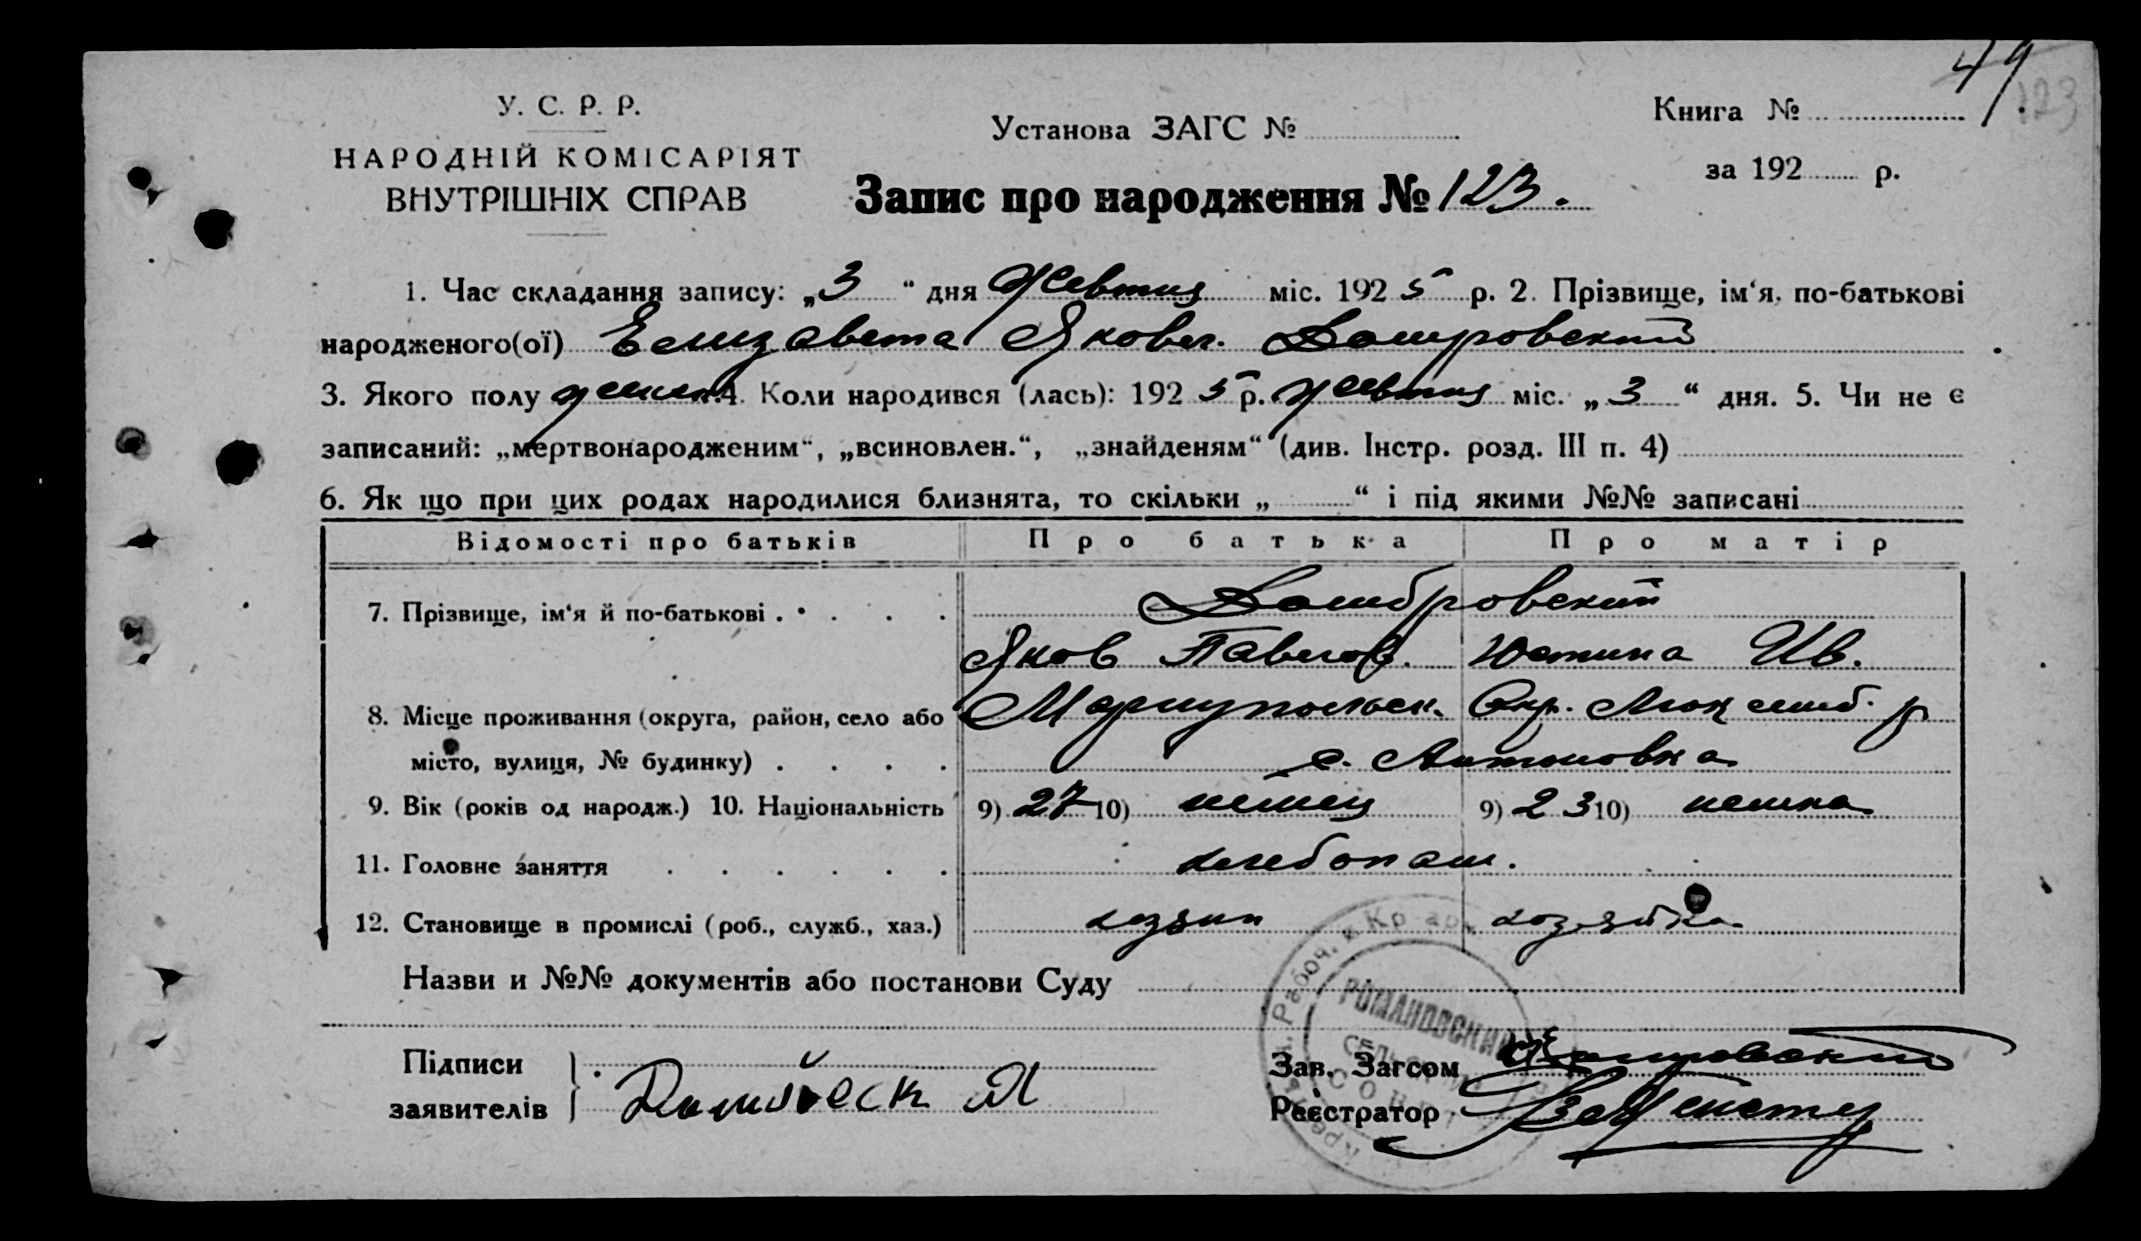 49
123
У. С. Р. Р.
НАРОДНІЙ КОМІСАРІЯТ
ВНУТРІШНІХ СПРАВ
Установа ЗАГС №
Книга №
за 192 р.
Запис про народження № 123.
1. Час складання запису: „3“ дня Жевтня міс. 1925 р. 2. Прізвище, ім‘я, по-батькові
народженого(ої) Елизавета Яковл. Домбровский
3. Якого полу женск. 4. Коли народився (лась): 1925 р. Жевтня міс. „3“ дня. 5. Чи не є
записаний: „мертвонародженим“, „всиновлен.“, „знайденям“ (див. Інстр. розд. III п. 4)
6. Як що при цих родах народилися близнята, то скільки „ “ і під якими №№ записані
Відомості про батьків Про батька Про матір
7. Прізвище, ім‘я й по-батькові Домбровский
Яков Павлов. Юстина Ив.
8. Місце проживання (округа, район, село або Мариупольск. Окр. Люксемб. р
місто, вулиця, № будинку) с. Антоновка
9. Вік (років од народж.) 10. Національність 9) 27 10) немец 9) 23 10) немка
11. Головне заняття хлебопаш.
12. Становище в промислі (роб., служб., хаз.) хозяин хозяйка
Назви и №№ документів або постанови Суду
РОМАНОВСКИЙ
Підписи
заявителів
Зав. Загсом
Реєстратор